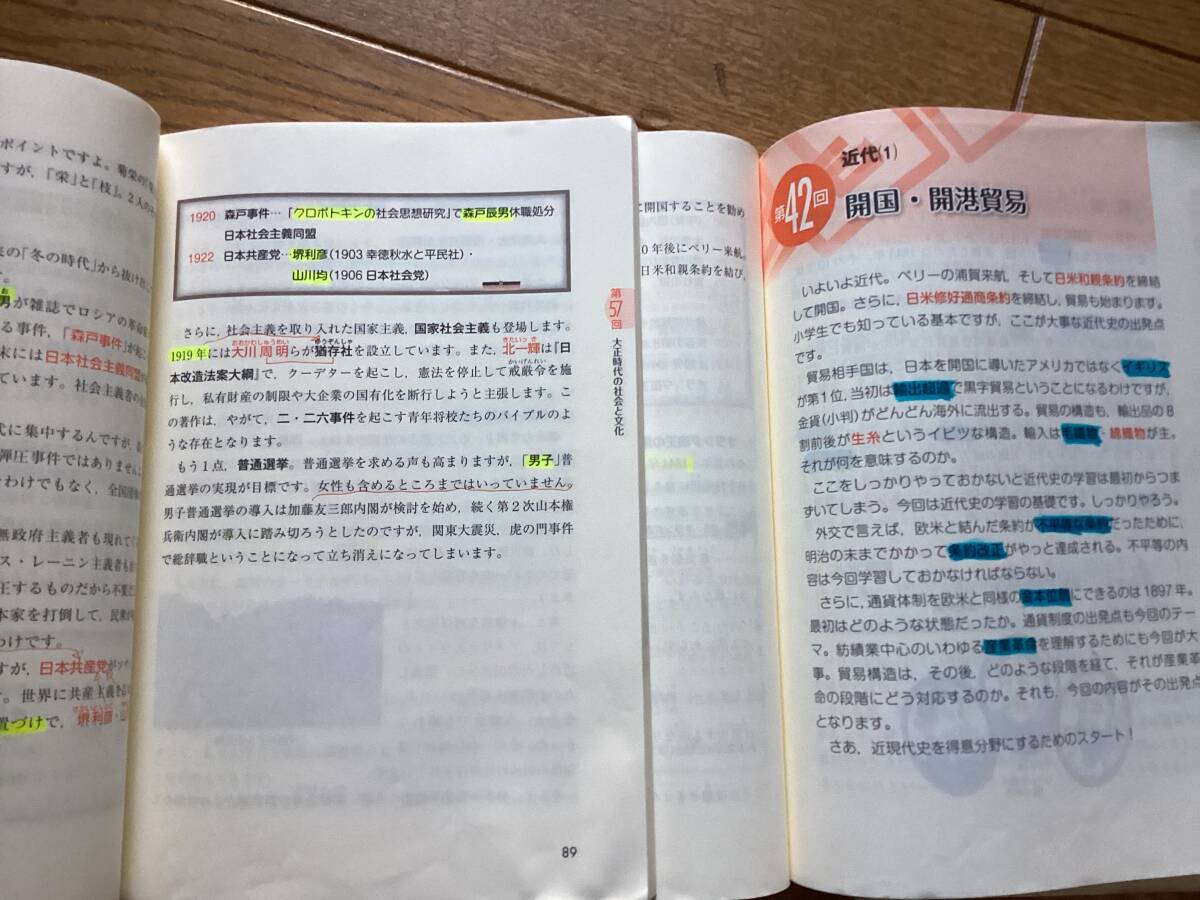 ポイントですよ。菊栄の「栄
すが,「栄」と「枝」。2人の
の「冬の時代」から抜け
男が雑誌でロシアの革命
る事件,「森戸事件」が起
末には日本社会主義同盟が
す。社会主義者の
代に集中するんですが,
弾圧事件ではありません
わけでもなく,全国
無政府主義者も現れて
ス・レーニン主義者も
圧するものだから不
本家を打倒して,民衆
わけです。
すが,日本共産党が
す。世界に共産主義を
置づけで,堺利彦・山
1920 森戸事件…「クロポトキンの社会思想研究」で森戸辰男休職処分
日本社会主義同盟
1922 日本共産党…堺利彦(1903 幸徳秋水と平民社)・
山川均(1906 日本社会党)
さらに,社会主義を取り入れた国家主義,国家社会主義も登場します。
おおかわしゅうめい ゆうぞんしゃ きたいっき
1919年には大川周明らが猶存社を設立しています。また,北一輝は『日
かいげんれい
本改造法案大綱』で,クーデターを起こし,憲法を停止して戒厳令を施
行し,私有財産の制限や大企業の国有化を断行しようと主張します。こ
の著作は,やがて,二・二六事件を起こす青年将校たちのバイブルのよ
うな存在となります。
もう1点,普通選挙。普通選挙を求める声も高まりますが,「男子」普
通選挙の実現が目標です。女性も含めるところまではいっていません。
男子普通選挙の導入は加藤友三郎内閣が検討を始め,続く第2次山本権
兵衛内閣が導入に踏み切ろうとしたのですが,関東大震災,虎の門事件
で総辞職ということになって立ち消えになってしまいます。
第57回 大正時代の社会と文化
89
に開国することを勧め
0年後にペリー来航。
日米和親条約を結び,
近代(1)
第42回 開国・開港貿易
いよいよ近代。ペリーの浦賀来航,そして日米和親条約を締結
して開国。さらに,日米修好通商条約を締結し,貿易も始まります。
小学生でも知っている基本ですが,ここが大事な近代史の出発点
です。
貿易相手国は,日本を開国に導いたアメリカではなくイギリス
が第1位,当初は輸出超過で黒字貿易ということになるわけですが,
金貨(小判)がどんどん海外に流出する。貿易の構造も,輸出品の8
割前後が生糸というイビツな構造。輸入は毛織物・綿織物が主。
それが何を意味するのか。
ここをしっかりやっておかないと近代史の学習は最初からつま
ずいてしまう。今回は近代史の学習の基礎です。しっかりやろう。
外交で言えば,欧米と結んだ条約が不平等な条約だったために,
明治の末までかかって条約改正がやっと達成される。不平等の内
容は今回学習しておかなければならない。
さらに,通貨体制を欧米と同様の金本位制にできるのは1897年。
最初はどのような状態だったか。通貨制度の出発点も今回のテー
マ。紡績業中心のいわゆる産業革命を理解するためにも今回が大
事。貿易構造は,その後,どのような段階を経て,それが産業革
命の段階にどう対応するのか。それも,今回の内容がその出発点
となります。
さあ,近現代史を得意分野にするためのスタート!